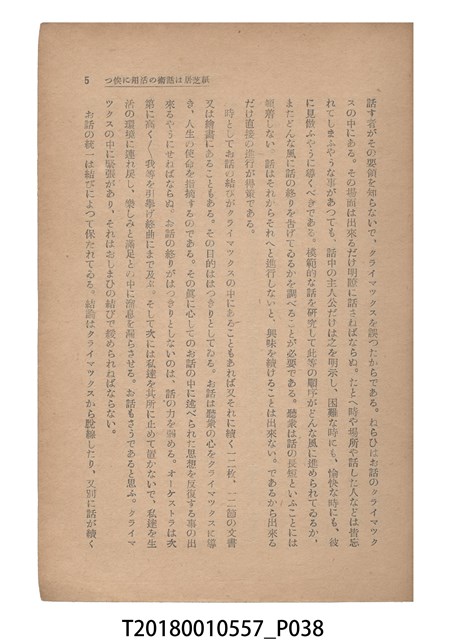 紙芝居は話術の活用に俟つ 5
話す者がその要領を知らないで、クライマツクスを誤つたからである。ねらひはお話のクライマツク
スの中にある。その場面は出來るだけ明瞭に話さねばならぬ。たとへ時や場所や話した人などは皆忘
れてしまふやうな事があつても、話中の主人公だけは之を明示し、困難な時にも、愉快な時にも、彼
に見倣ふやうに導くべきである。模範的な話を研究して此等の順序がどんな風に進められてゐるか、
またどんな風に話の終りを告げてゐるかを調べることが必要である。聽衆は話の長短といふことには
頓着しない。話はそれからそれへと進行しないと、興味を續けることは出來ない。であるから出來る
だけ直接の進行が得策である。
時としてお話の結びがクライマツクスの中にあることもあれば又それに續く一二枚、一二節の文書
又は繪畫にあることもある。その目的ははつきりとしてゐる。お話は聽衆の心をクライマツクスに導
き、人生の使命を指摘するのである。その眞に心してのお話の中に述べられた思想を反復する事の出
來るやうにせねばならぬ。お話の終りがはつきりとしないのは、話の力を弱める。オーケストラは次
第に高く〱我等を引擧げ終曲にまで及ぶ。そして次には私達を其所に止めて置かないで、私達を生
活の環境に連れ戾し、樂しみと滿足との中に溜息を漏らさせる。お話もさうであると思ふ。クライマ
ツクスの中に緊張があり、それはおしまひの結びで緩められねばならない。
お話の統一は結びによつて保たれてゐる。結論はクライマツクスから脫線したり、又別に話が續く
T20180010557_P038